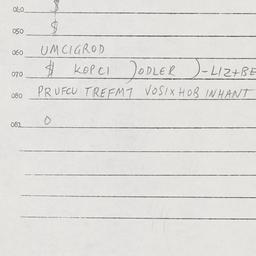 040 $
050 $
060 UMCIGROD
070 $ KOPCI )ODLER )-LIZ+BE
080 PRUFCU TREFMT VOSIXHOB INHANT
081 O